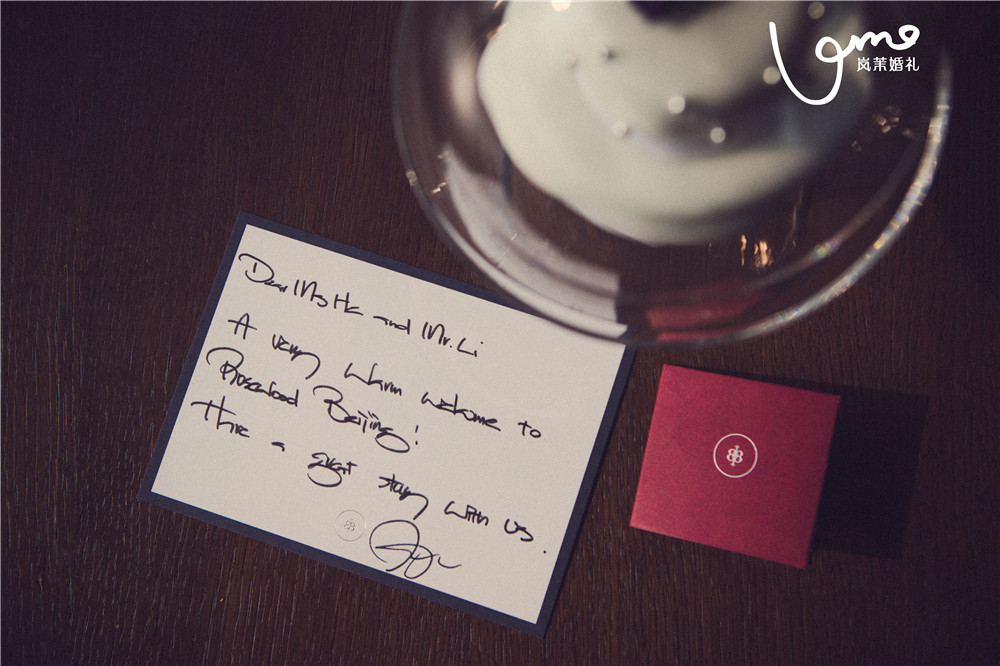 Lame
岚茉婚礼
Dear Ms He and Mr. Li
A very warm welcome to
Rosewood Beijing!
Have a great stay with us.